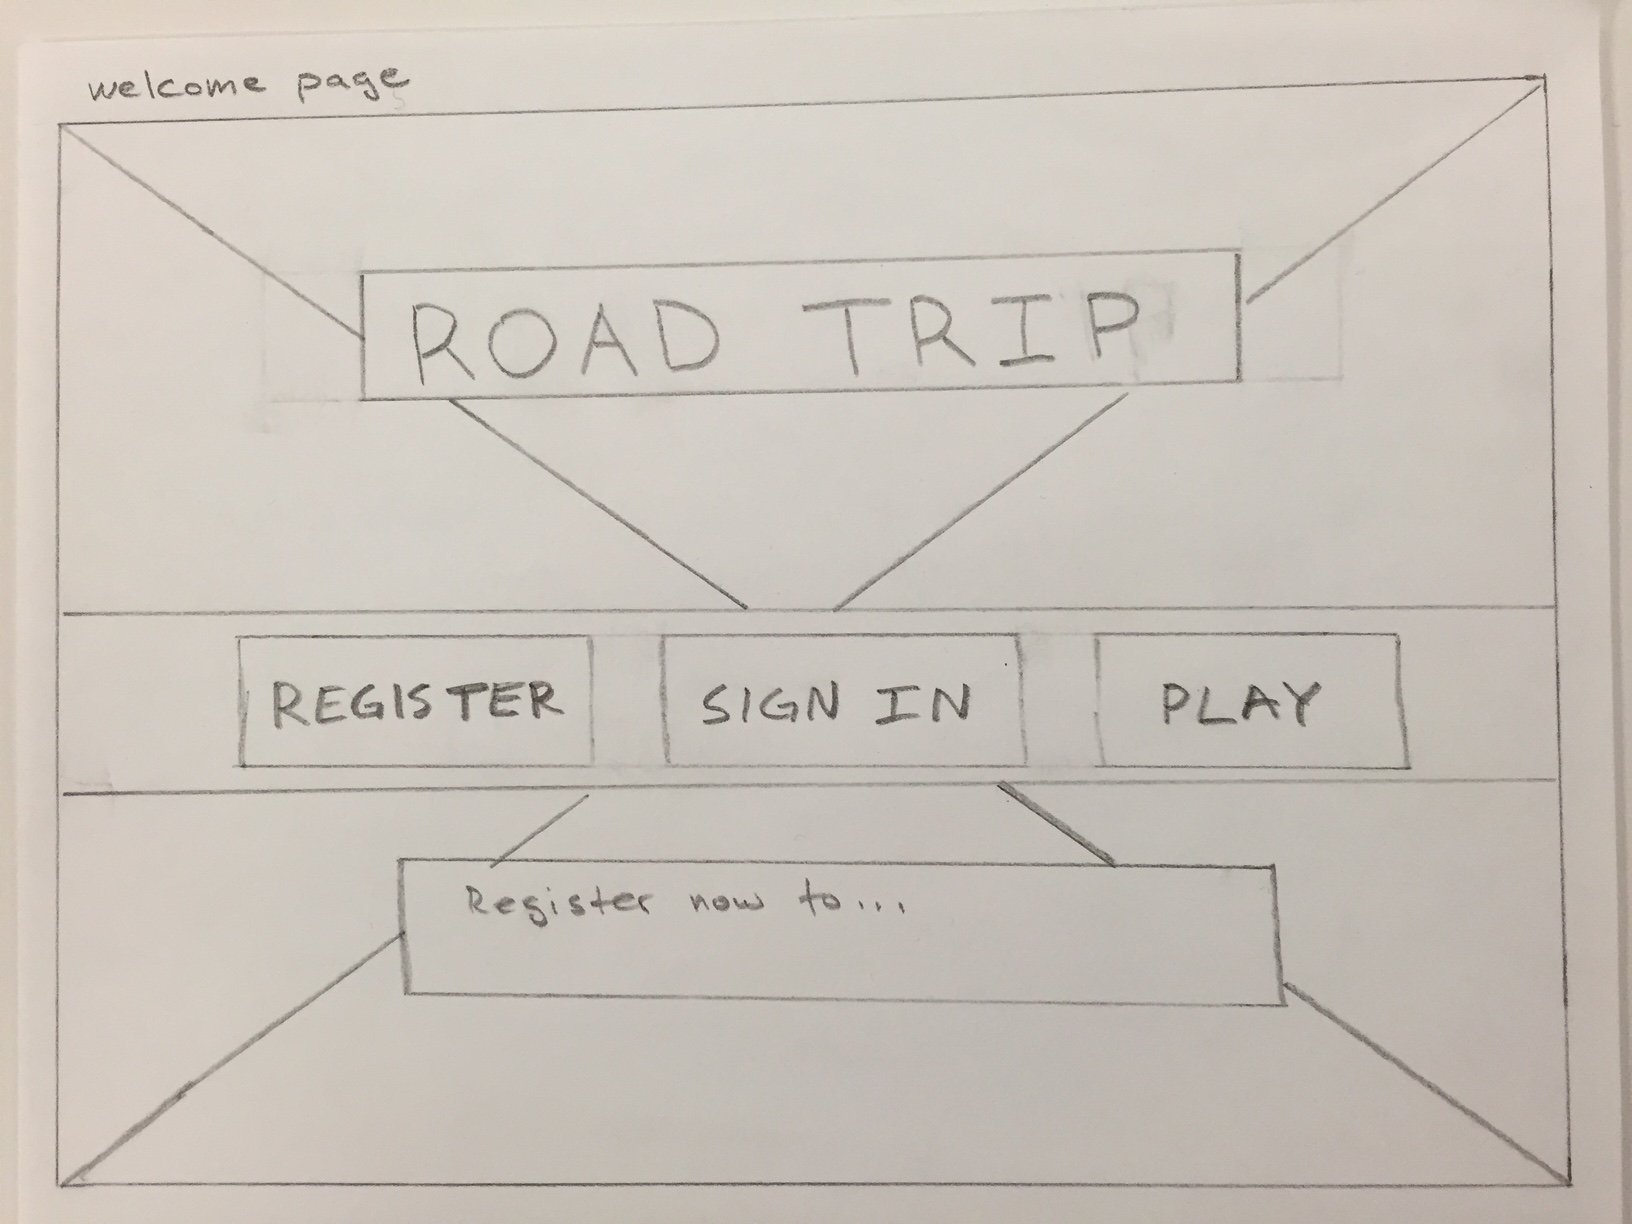 welcome page
ROAD TRIP
REGISTER
SIGN IN
PLAY
Register now to...